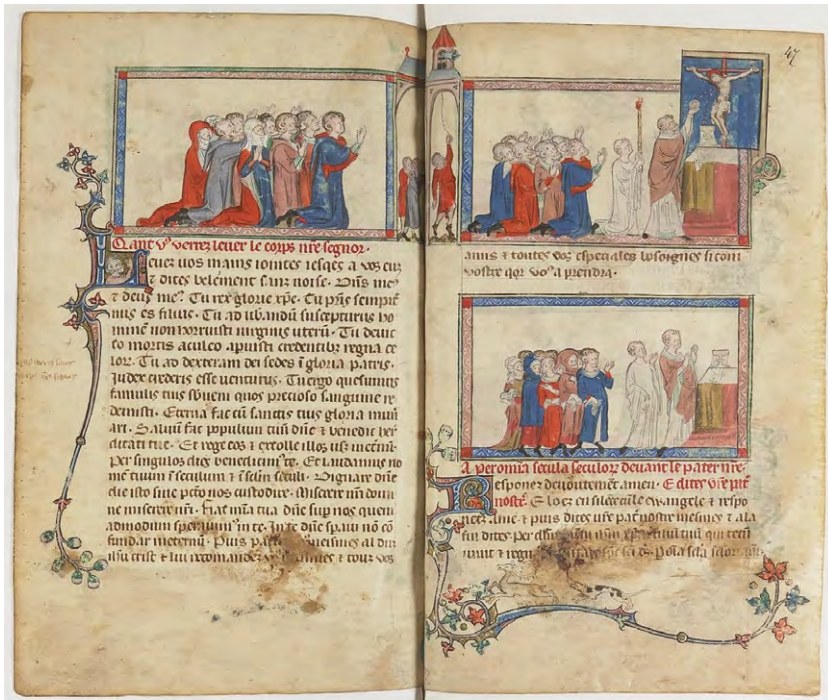 Q ant vo᷒ verrez leuer le corps nr̄e segnor·
Leuez uos mains iointes iesqes a vos euz
⁊ dites belement sanz noise· Dn̄s me᷒
⁊ deus me᷒? Tu rex glorie xp̄e· Tu pr̄is sempit̄
nus es filius· Tu ad liƀandū suscepturus ho
minē non horruisti uirginis uterū· Tu deuic
to mortis aculeo apuisti credentibꝫ regna ce
lor᷒· Tu ad dexteram dei sedes ī gloria patris·
Judex crederis esse uenturus· Tu ergo quesumus
famulis tuis sbueni quos precioso sanguine re
demisti· Eterna fac cū sanctis tuis gloria mun̄
ari· Saluū fac populum tuū dn̄e ⁊ benedic her
ditati tue· Et rege eos ⁊ extolle illos usqꝫ inet̄nū·
Per singulos dies benedicim᷒ te· Et laudamus no
mē tuum ī seculum ⁊ ī sclm̄ scłi· Dignare dn̄e
die isto sine pcc̄o nos custodire· Miserere nr̄i domi
ne miserere nr̄i· Fiat mīa tua dn̄e sup nos quem
admodum sperauim᷒ in te· In te dn̄e spaui nō cō
fundar in eternū· Puis meismes al
ihū crist ⁊ lui recomandez ⁊ touz vos
47
amis ⁊ toutes voz especiales bosoignes si com
vostre qor vo᷒ a prendra·
A per omīa secula seculor᷒ deuant le pater nr̄e·
Responez deuoutement amen· E dites vr̄e pat̄
nostr̄· E loez en silence le ewangele ⁊ respo
nez ame· ⁊ puis dites vr̄e pat̄ nostre meismes ⁊ a la
fin dites· Per xp̄m filiū tuū qui tecū
uiuit ⁊ regn